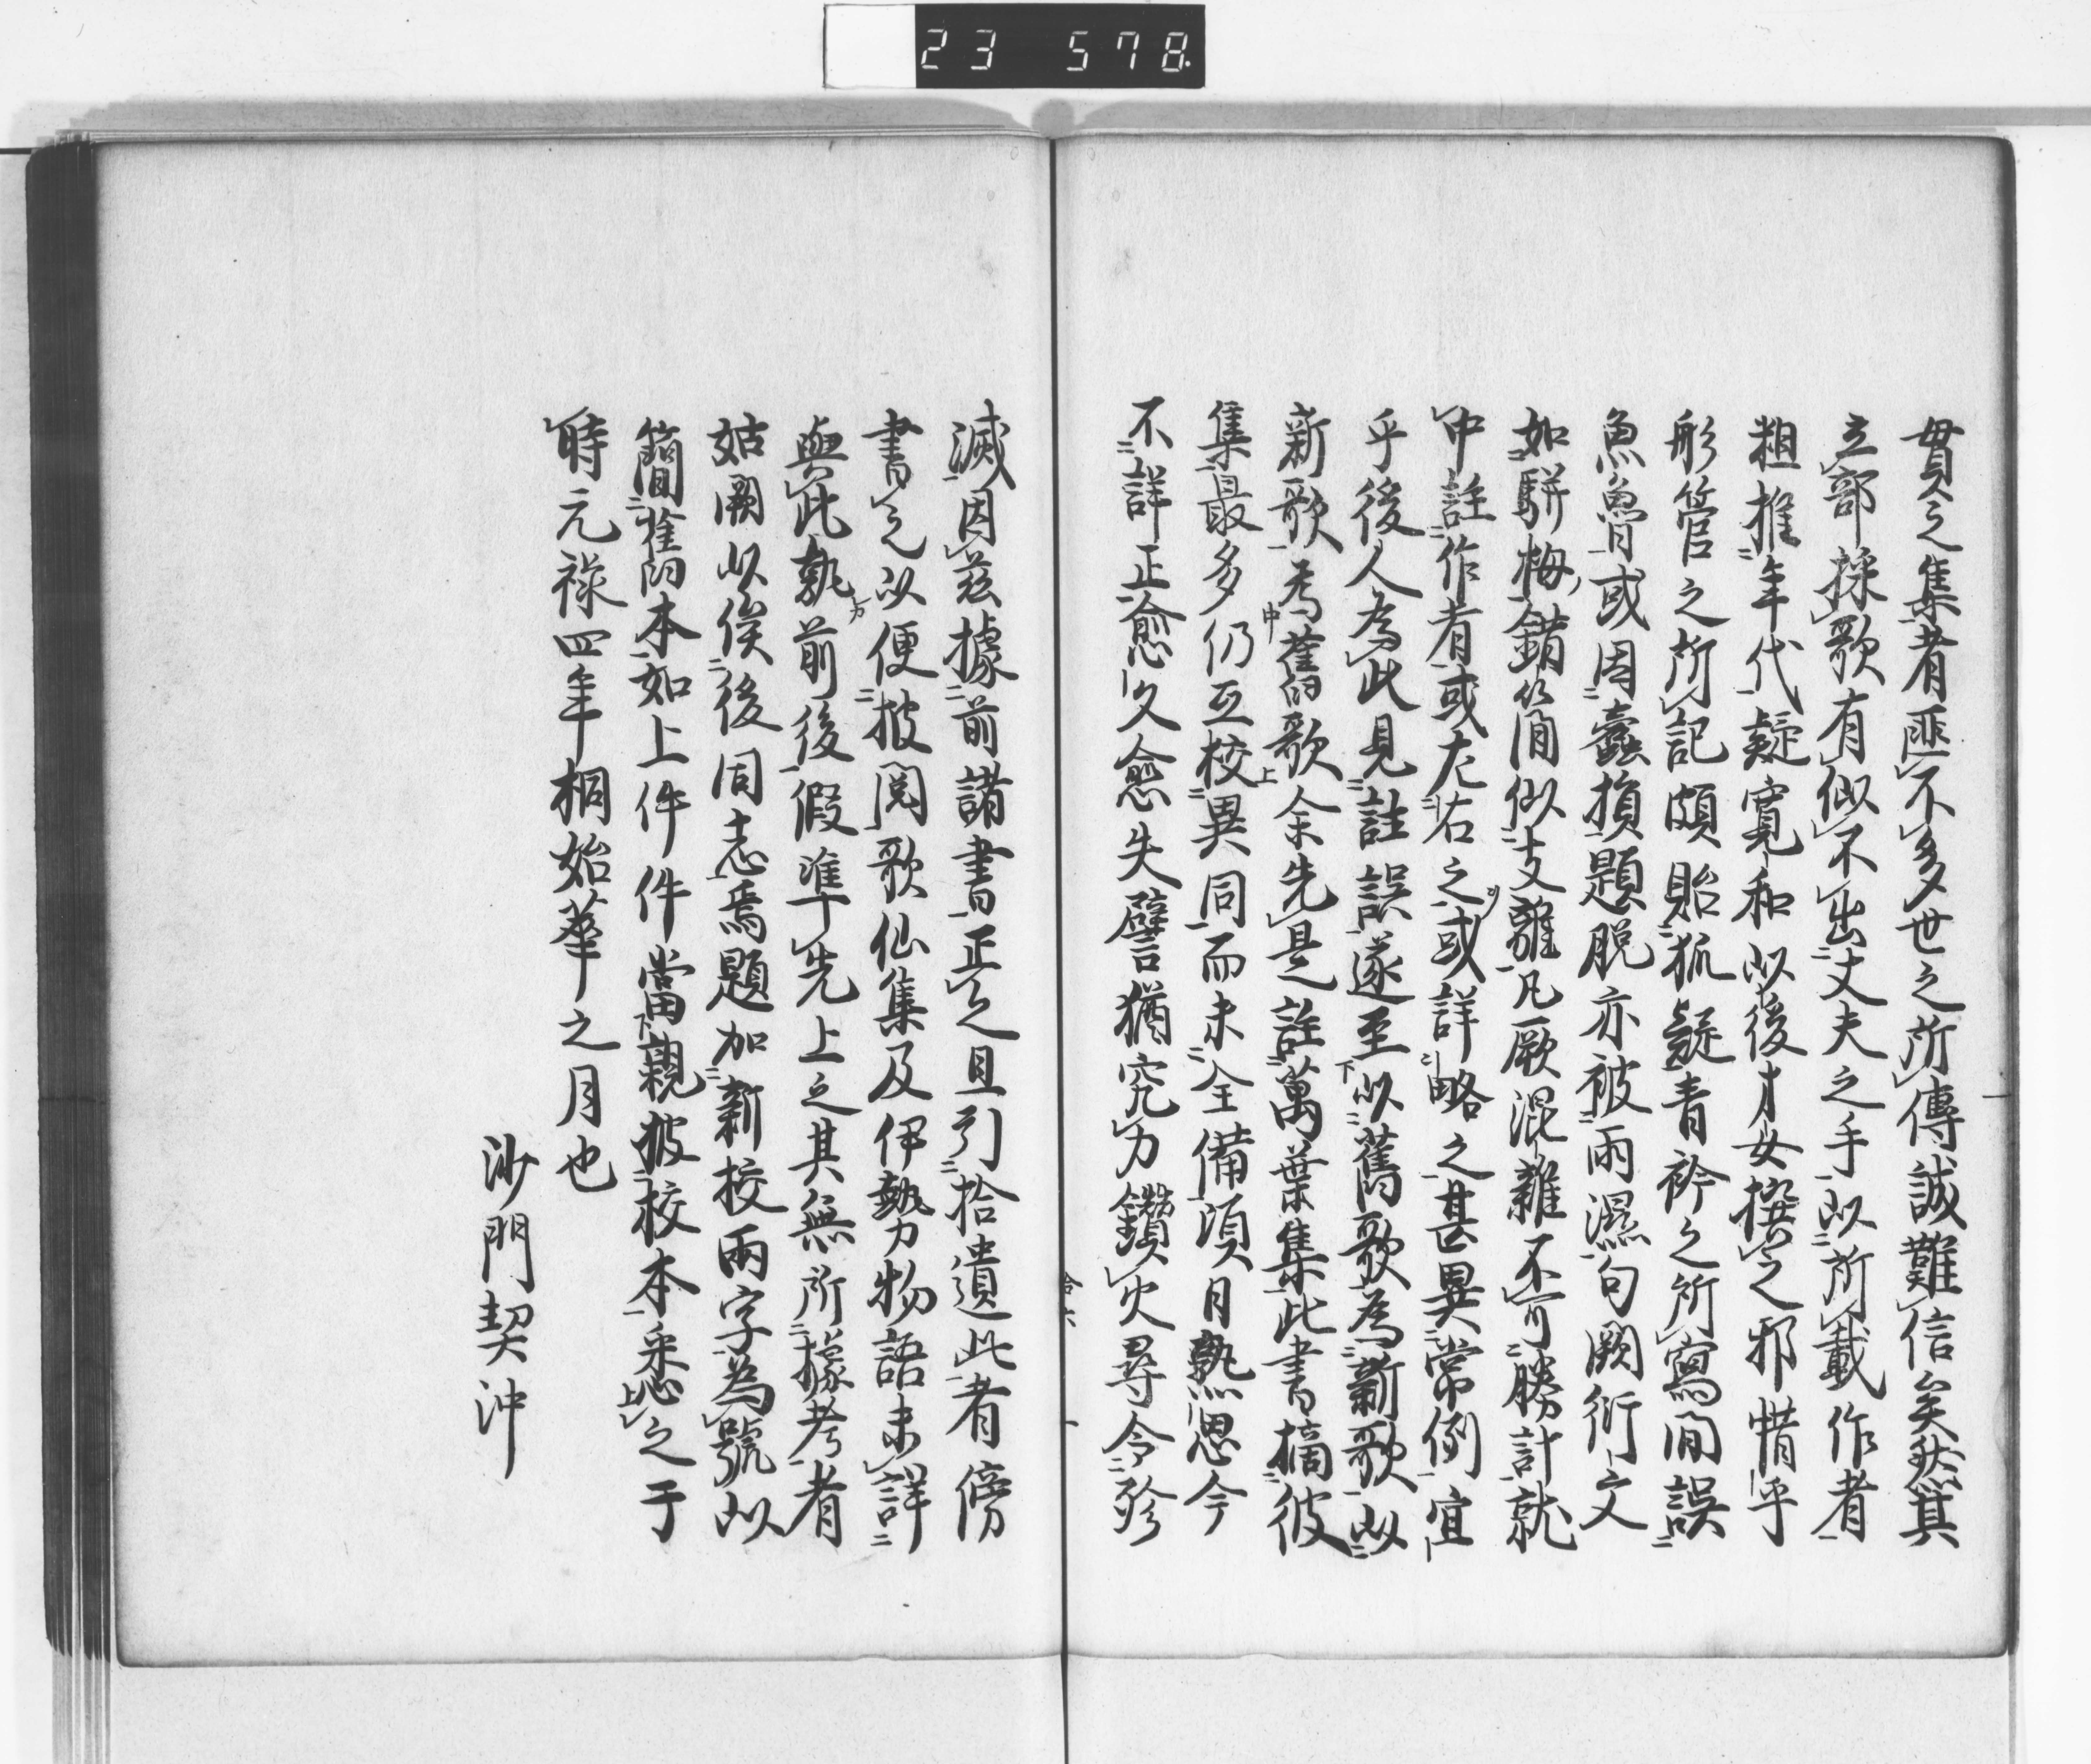 23 578
貫之集者匪不多世之所傳誠難信矣然其
立部採歌有似不出丈夫之手以所載作者
粗推年代疑寛和以後才女撰之邪惜乎
彤管之所記頗貽狐疑青衿之所寫間誤
魚魯或因蠹損題脱亦被雨濕句闕衍文
如駢拇錯簡似支離凡厥混雜不可勝計就
中註作者或左右之或詳略之甚異常例宜
乎後人為此見註誤遂至以舊歌為新歌以
新歌為舊歌余先是註萬葉集此書摘彼
集最多仍互校異同而未全備頃月熟思今
不詳正愈久愈失譬猶究力鑽火尋令殄
滅因茲據前諸書正之且引拾遺此者傍
書之以便披閲歌仙集及伊勢物語未詳
與此孰前後假準先上之其無所據考者
姑闕以俟後同志焉題加新校兩字為號以
簡舊本如上件件當親披校本悉之于
時元祿四年桐始華之月也
沙門契沖